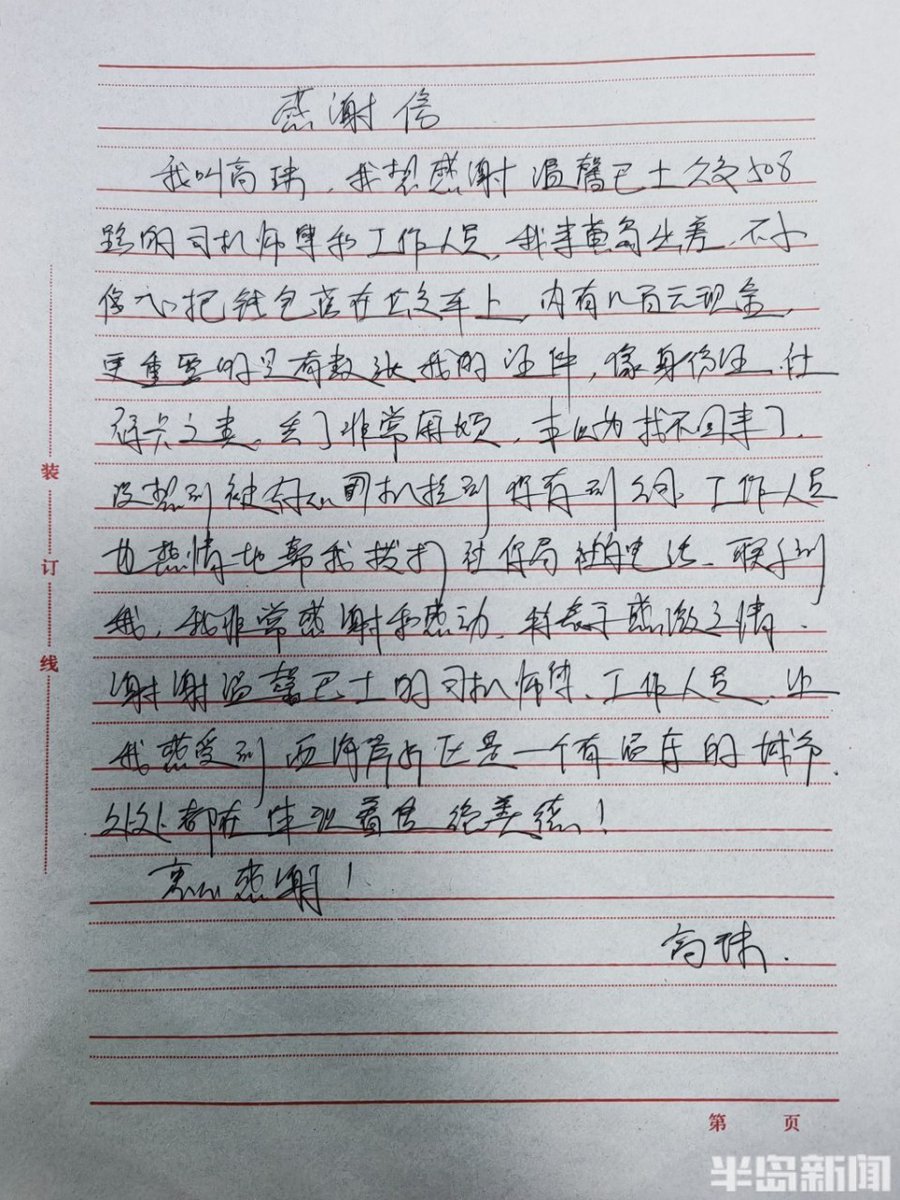 感谢信
我叫高琲,我想感谢温馨巴士公交508
路的司机师傅和工作人员,我来黄岛出差,不小
心把钱包落在公交车上,内有几百元现金,
更重要的是有数张我的证件,像身份证、社
保卡之类,丢了非常麻烦,本以为找不回来了,
没想到被好心司机捡到保存到公司,工作人员
也热情地帮我拨打社保局的电话、联系到
我,我非常感谢和感动,特表示感激之情.
谢谢温馨巴士的司机师傅、工作人员,让
我感受到西海岸新区是一个有温度的城市,
处处都在体现着传统美德!
衷心感谢!
高琲.
装
订
线
第 页
半岛新闻